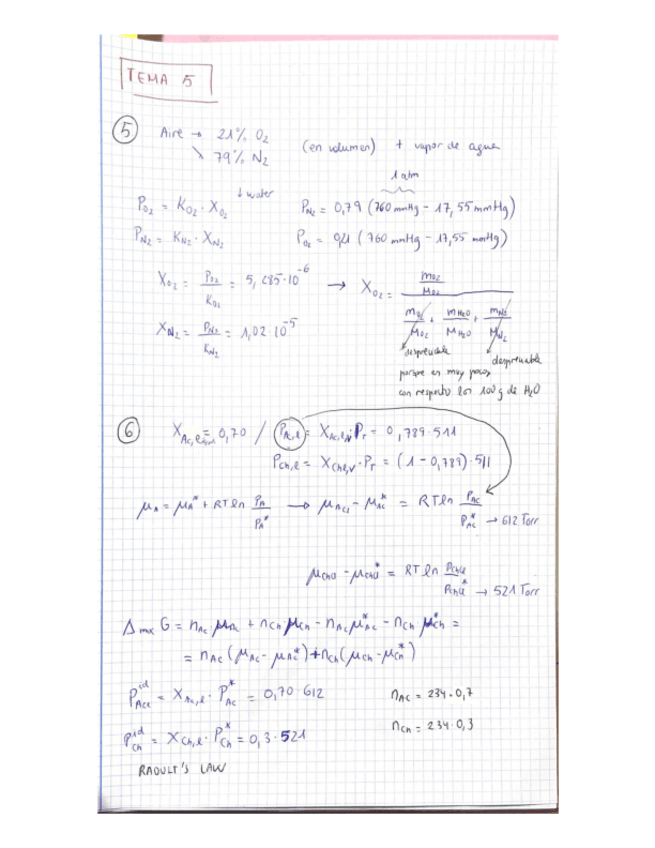 TEMA 5
5 Aire → 21% O₂ (en volumen) + vapor de agua
↘ 79% N₂
1 atm
↓ water
P_O₂ = K_O₂ · X_O₂ P_N₂ = 0,79 (760 mmHg - 17,55 mmHg)
P_N₂ = K_N₂ · X_N₂ P_O₂ = 0,21 (760 mmHg - 17,55 mmHg)
X_O₂ = P_O₂ / K_O₂ = 5,285·10⁻⁶ → X_O₂ = (m_O₂ / M_O₂) / (m_O₂ / M_O₂ + m_H₂O / M_H₂O + m_N₂ / M_N₂)
X_N₂ = P_N₂ / K_N₂ = 1,02·10⁻⁵
despreciable despreciable
porque es muy poco
con respecto 100 g de H₂O
6 X_Ac,l = 0,70 / P_Ac,l = X_Ac,v · P_T = 0,789·511
P_Ch,l = X_Ch,v · P_T = (1 - 0,789)·511
μ_A = μ_A* + RT ln P_A / P_A* → μ_Ac,l - μ_Ac* = RT ln P_Ac / P_Ac* → 612 Torr
μ_Ch,l - μ_Ch,l* = RT ln P_Ch,l / P_Ch,l* → 521 Torr
Δ_mix G = n_Ac μ_Ac + n_Ch μ_Ch - n_Ac μ_Ac* - n_Ch μ_Ch* =
= n_Ac (μ_Ac - μ_Ac*) + n_Ch (μ_Ch - μ_Ch*)
P_Ac,l^id = X_Ac,l · P_Ac* = 0,70·612 n_Ac = 234·0,7
P_Ch^id = X_Ch,l · P_Ch* = 0,3·521 n_Ch = 234·0,3
RAOULT'S LAW